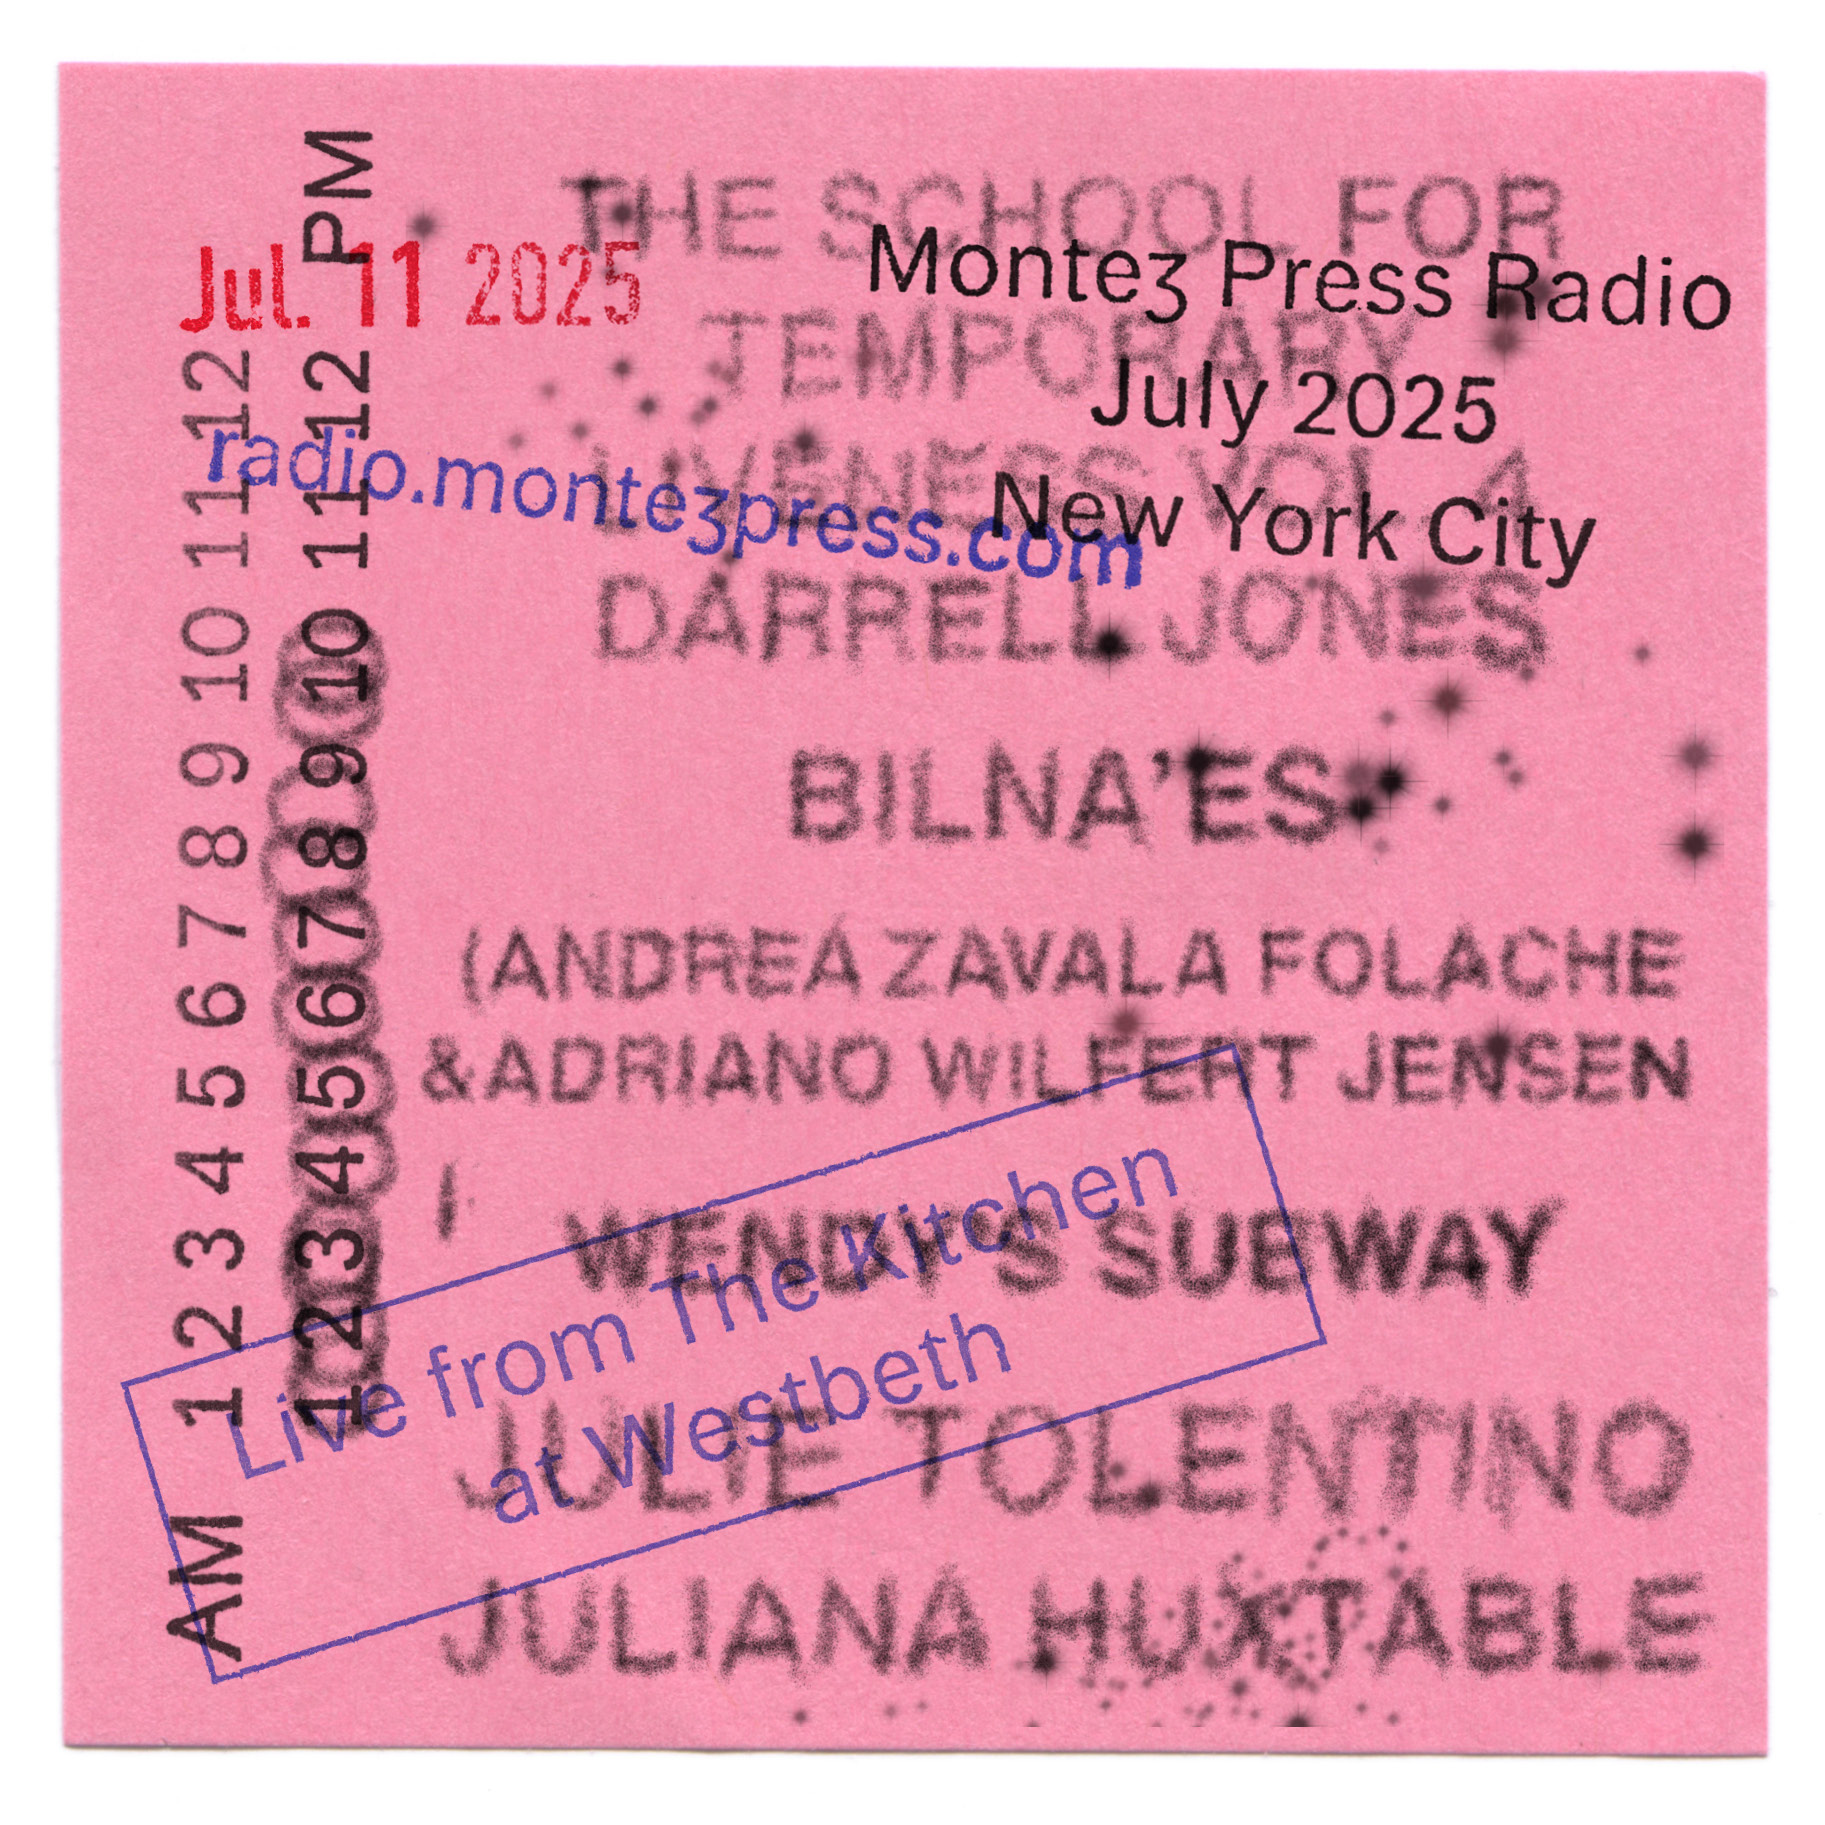 THE SCHOOL FOR
TEMPORARY
LIVENESS VOL 4
DARRELL JONES
BILNA’ES
(ANDREA ZAVALA FOLACHE
&ADRIANO WILFERT JENSEN
WENDY'S SUBWAY
JULIE TOLENTINO
JULIANA HUXTABLE
Monteʒ Press Radio
July 2025
New York City
Jul. 11 2025
radio.monteʒpress.com
AM 1 2 3 4 5 6 7 8 9 10 11 12
1 2 3 4 5 6 7 8 9 10 11 12 PM
Live from The Kitchen
at Westbeth